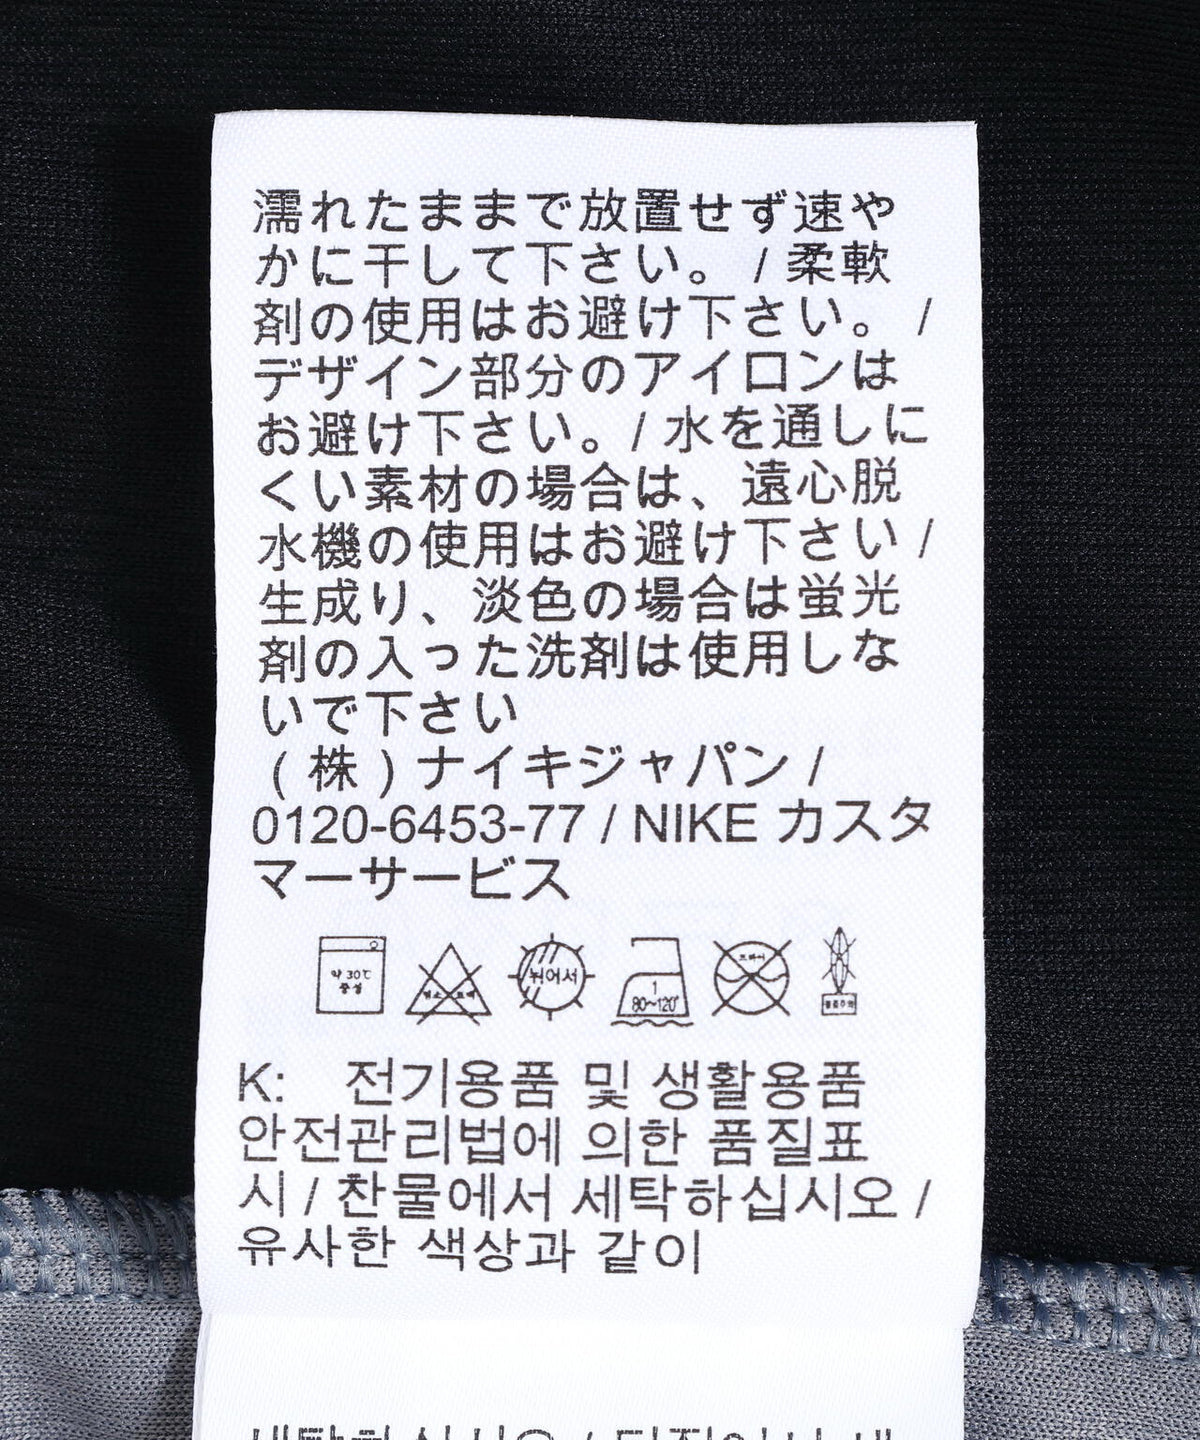 濡れたままで放置せず速や
かに干して下さい。 / 柔軟
剤の使用はお避け下さい。 /
デザイン部分のアイロンは
お避け下さい。/ 水を通しに
くい素材の場合は、遠心脱
水機の使用はお避け下さい /
生成り、淡色の場合は蛍光
剤の入った洗剤は使用しな
いで下さい
(株)ナイキジャパン /
0120-6453-77 / NIKE カスタ
マーサービス
약 30℃
중성
뉘어서
1
80~120°
드라이
K: 전기용품 및 생활용품
안전관리법에 의한 품질표
시 / 찬물에서 세탁하십시오 /
유사한 색상과 같이